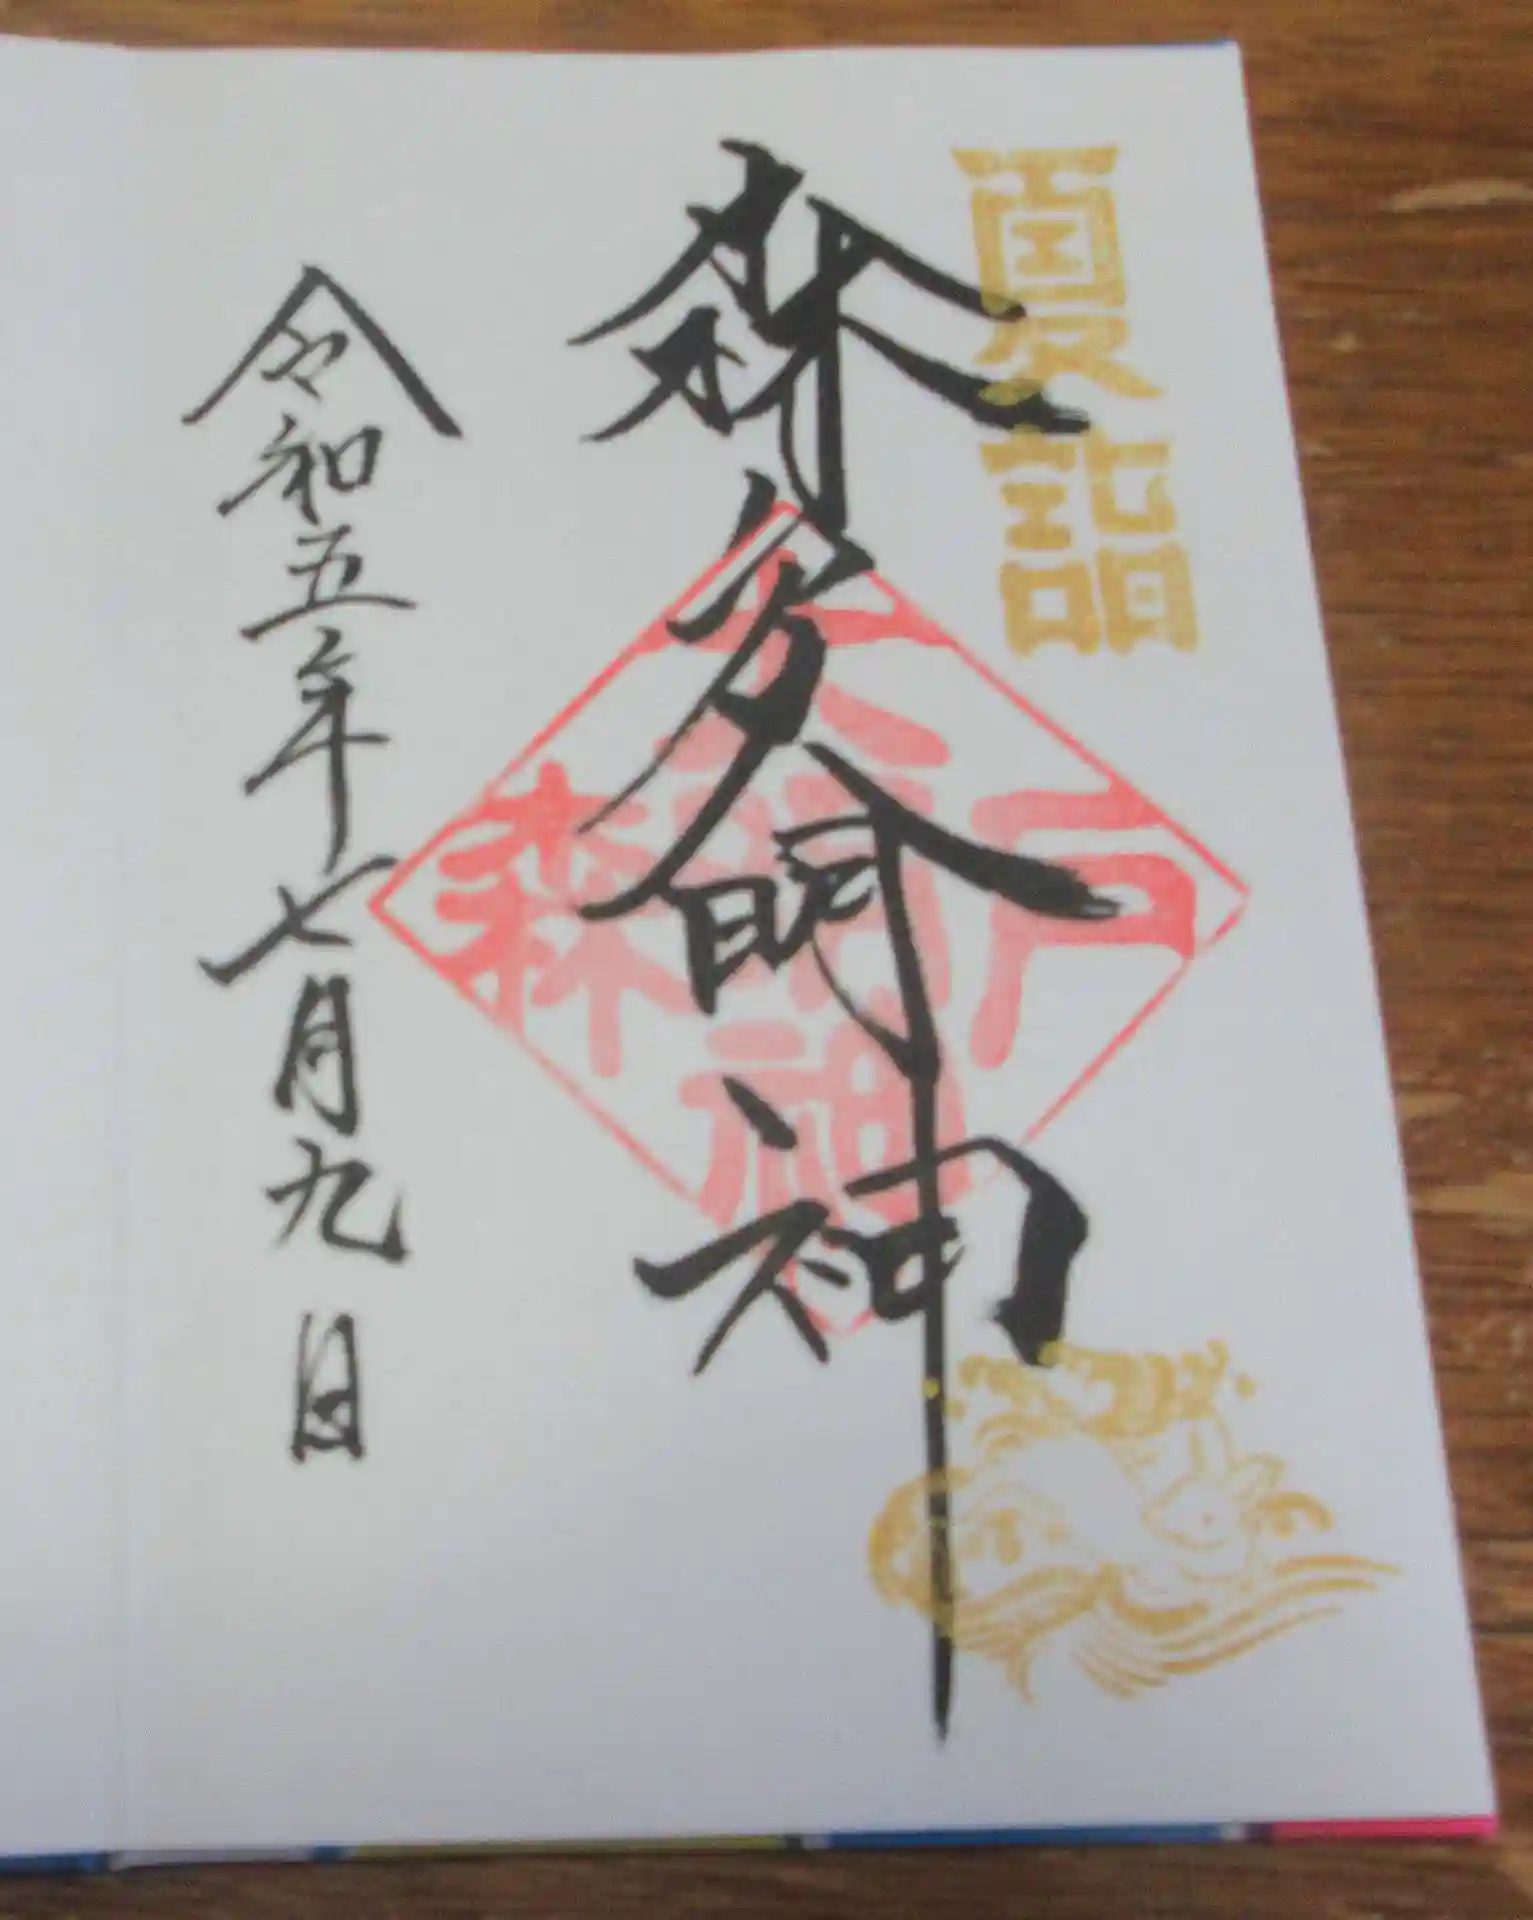 夏詣
森戸大明神
森戸大明神
令和五年七月九日